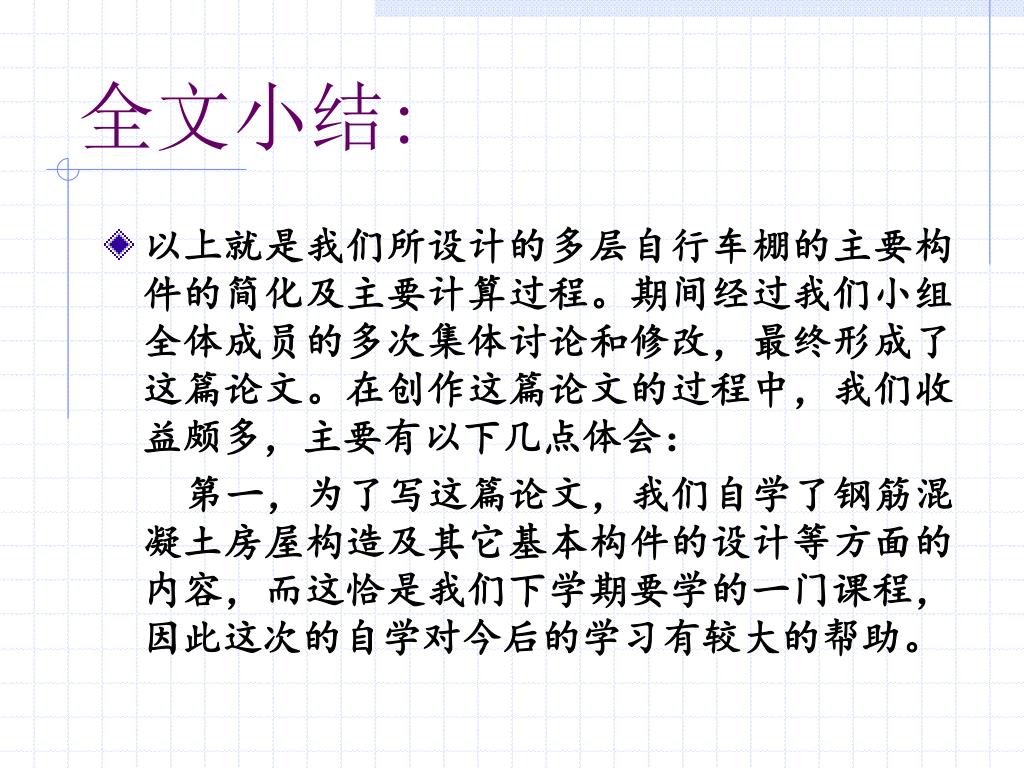 全文小结:
以上就是我们所设计的多层自行车棚的主要构
件的简化及主要计算过程。期间经过我们小组
全体成员的多次集体讨论和修改，最终形成了
这篇论文。在创作这篇论文的过程中，我们收
益颇多，主要有以下几点体会：
第一，为了写这篇论文，我们自学了钢筋混
凝土房屋构造及其它基本构件的设计等方面的
内容，而这恰是我们下学期要学的一门课程，
因此这次的自学对今后的学习有较大的帮助。